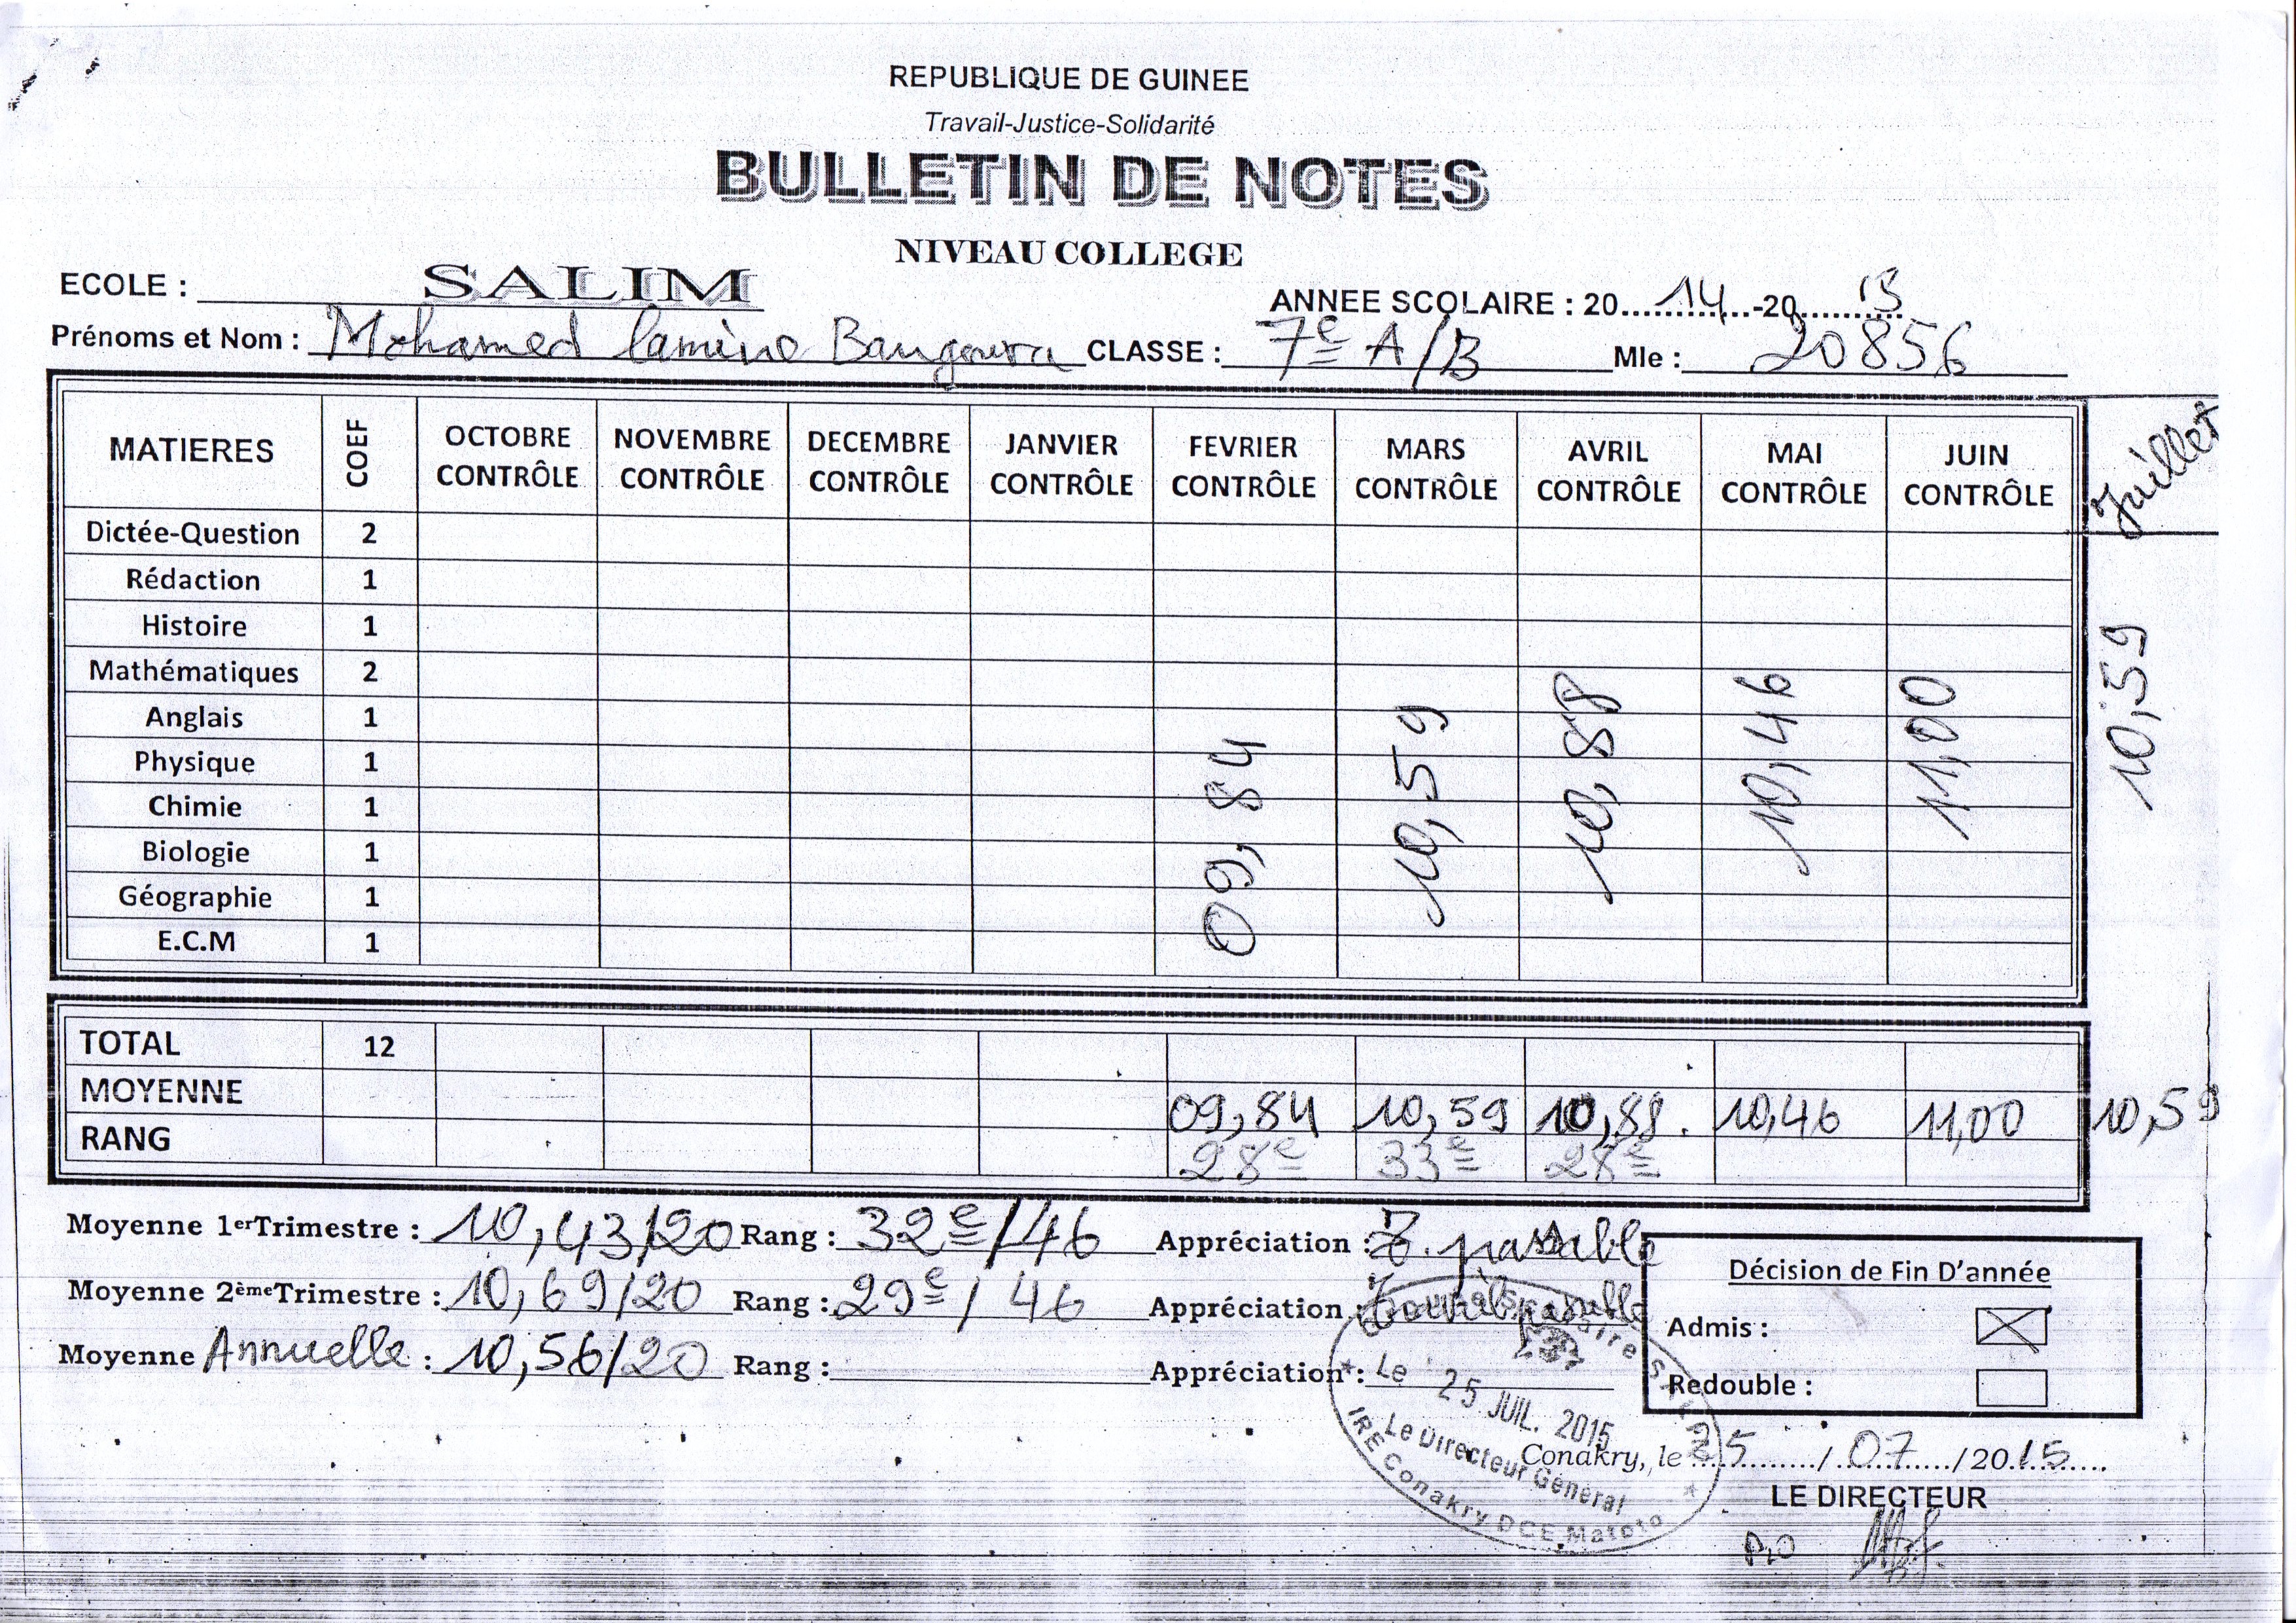 REPUBLIQUE DE GUINEE
Travail-Justice-Solidarité
BULLETIN DE NOTES
NIVEAU COLLEGE
ECOLE : SALIM
ANNEE SCOLAIRE : 20....14....-20....15....
Prénoms et Nom : Mohamed lamine Bangoura CLASSE : 7e A/B Mle : 20856
MATIERES COEF OCTOBRE CONTRÔLE NOVEMBRE CONTRÔLE DECEMBRE CONTRÔLE JANVIER CONTRÔLE FEVRIER CONTRÔLE MARS CONTRÔLE AVRIL CONTRÔLE MAI CONTRÔLE JUIN CONTRÔLE Juillet
Dictée-Question 2
Rédaction 1
Histoire 1
Mathématiques 2
Anglais 1
Physique 1
Chimie 1
Biologie 1
Géographie 1
E.C.M 1
09,84 10,59 10,88 10,46 11,00 10,59
TOTAL 12
MOYENNE 09,84 10,59 10,88. 10,46 11,00 10,59
RANG 28e 33e 28e
Moyenne 1erTrimestre : 10,43/20 Rang : 32e/46 Appréciation : T. passable
Moyenne 2èmeTrimestre : 10,69/20 Rang : 29e/46 Appréciation : Travail passable
Moyenne Annuelle : 10,56/20 Rang : Appréciation :
Décision de Fin D'année
Admis : X
Redouble :
Le 25 JUIL. 2015
Le Directeur Général
IRE Conakry DCE Matoto
Conakry, le 25 / 07 / 2015
LE DIRECTEUR